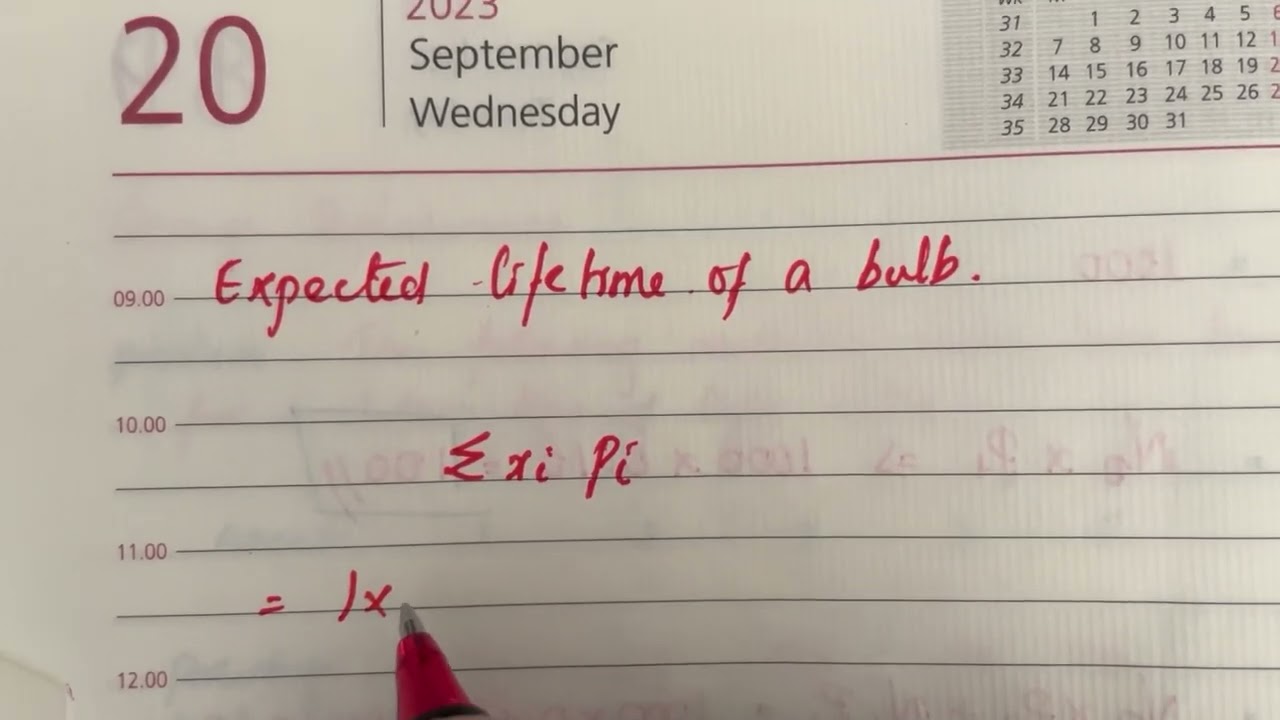 20
2023
September
Wednesday
31 1 2 3 4 5
32 7 8 9 10 11 12
33 14 15 16 17 18 19
34 21 22 23 24 25 26
35 28 29 30 31
09.00 Expected lifetime of a bulb.
10.00
Σ xi Pi
11.00
= 1x
12.00